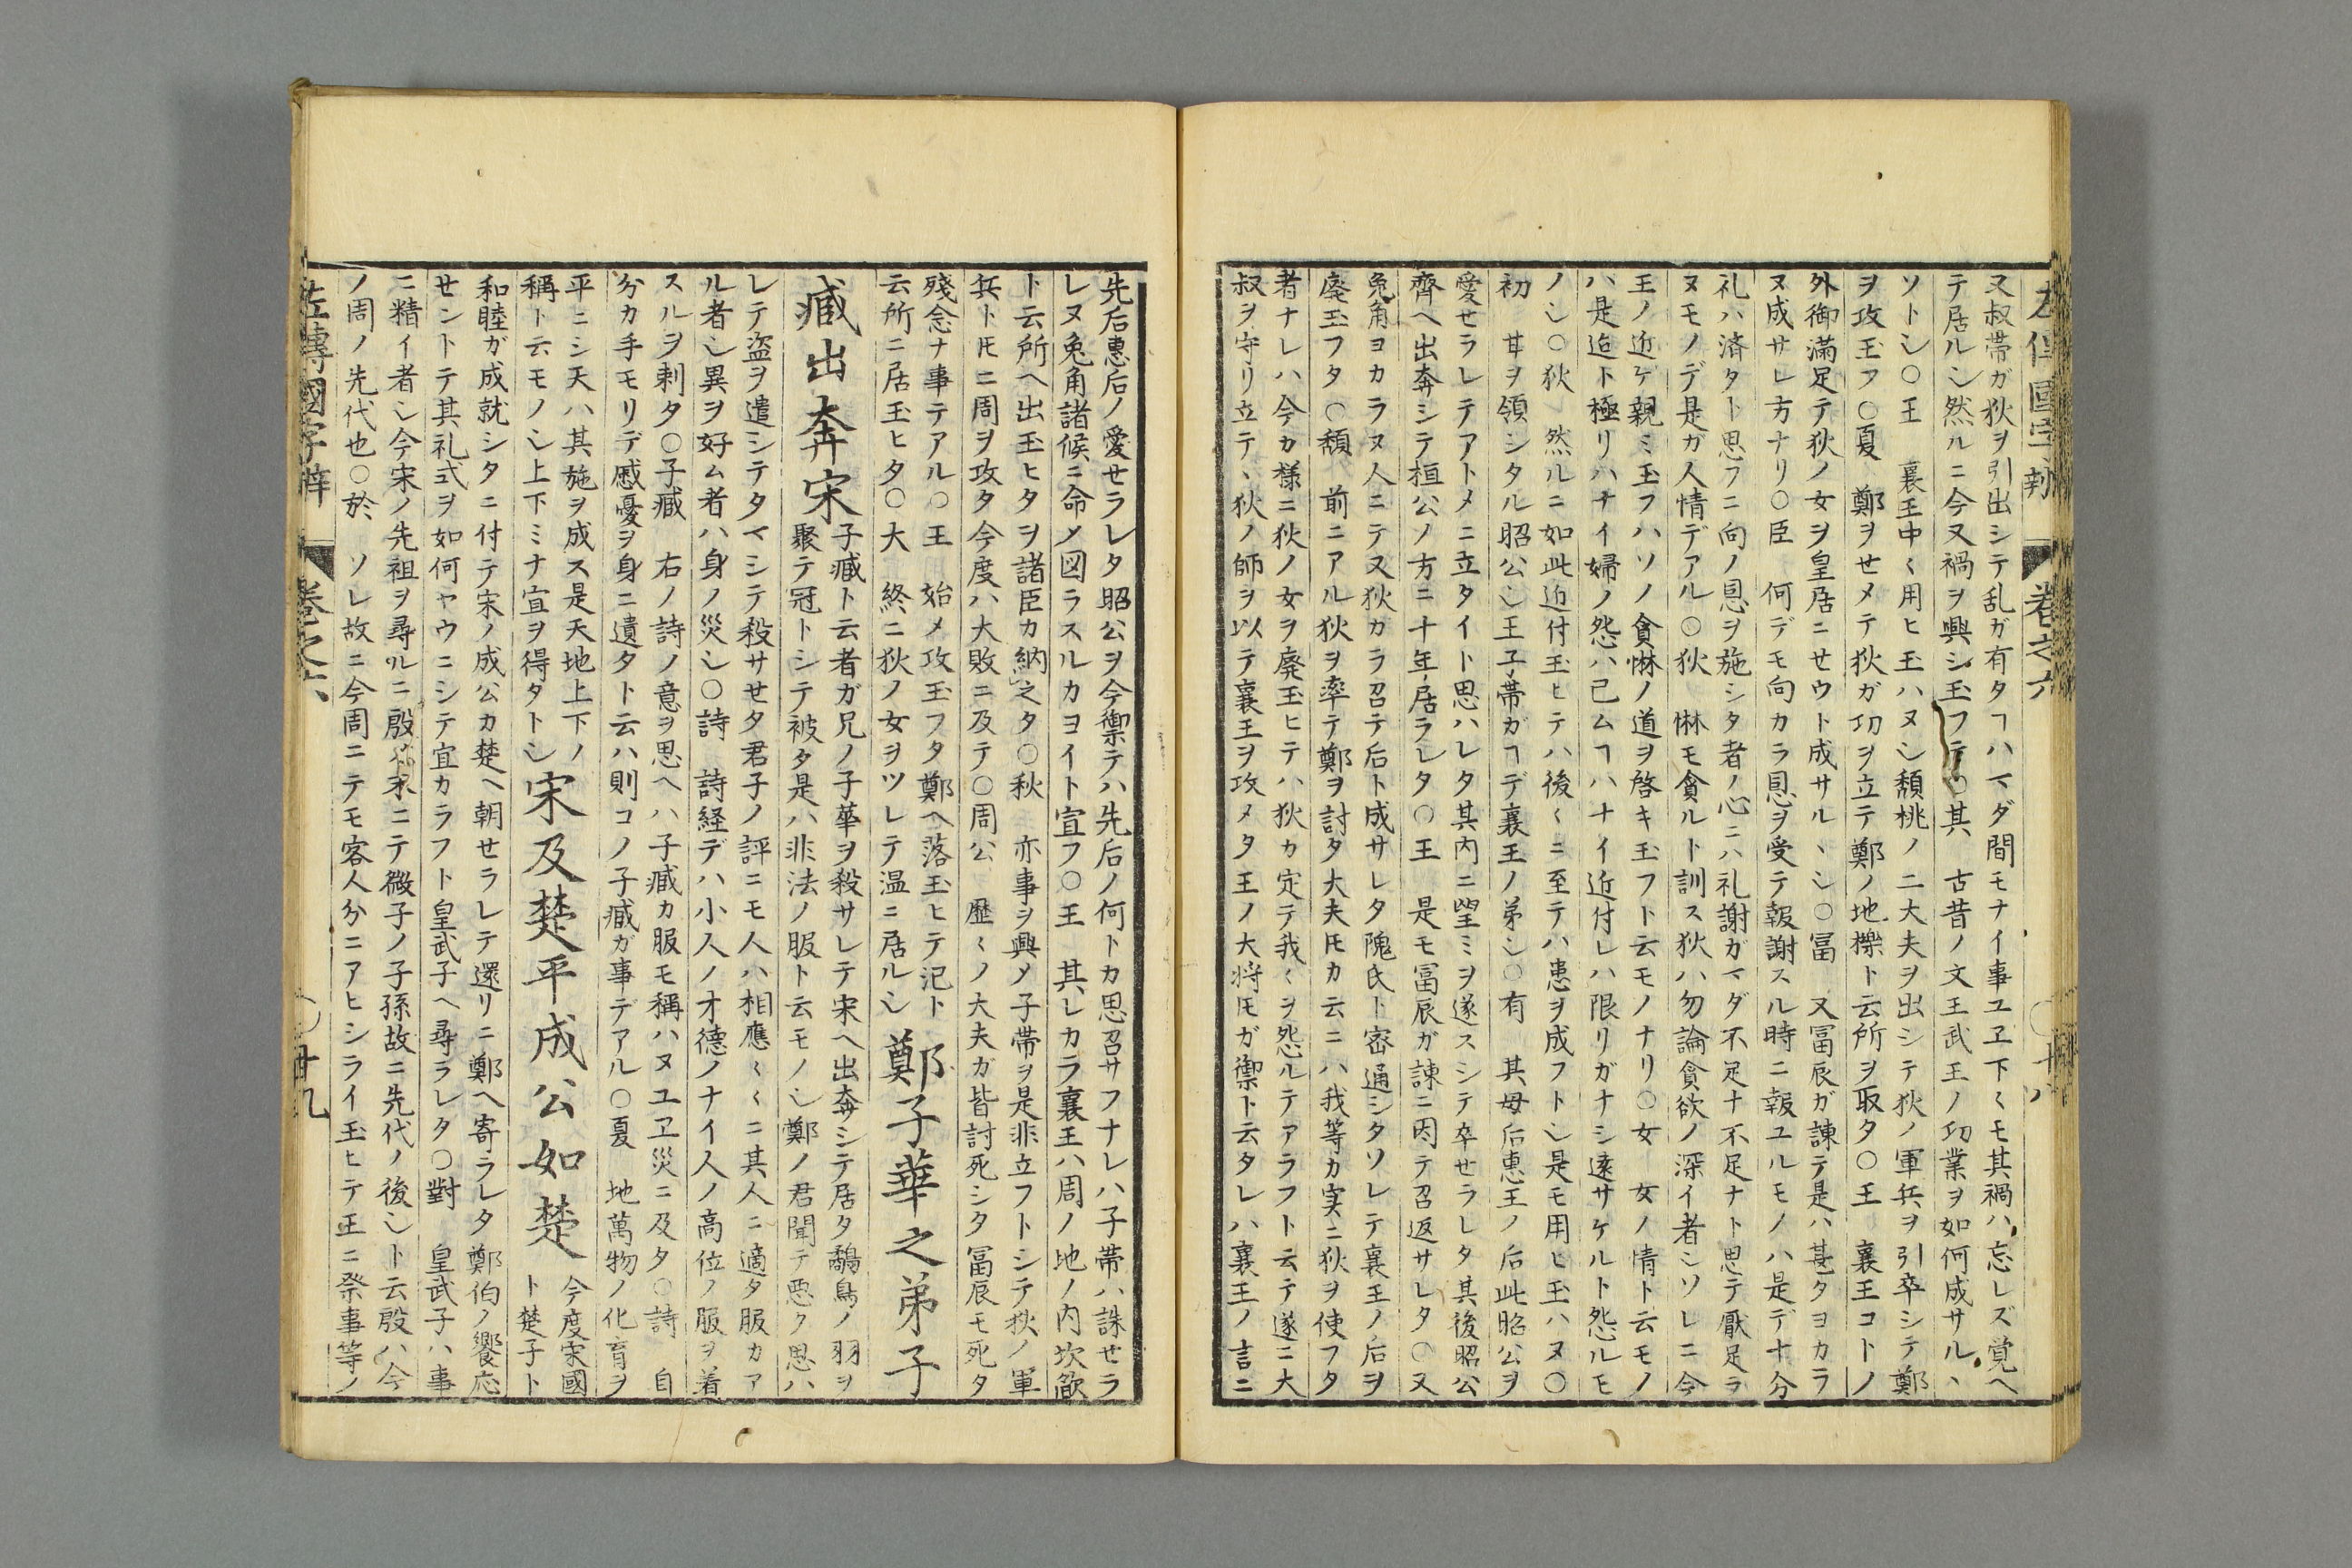 又叔帯ガ狄ヲ引出シテ乱ガ有タヿハマダ間モナイ事ユヱ下〱モ其禍ハ忘レズ覚ヘ
テ居ルシ然ルニ今又禍ヲ興シ玉フテ○其　古昔ノ文王武王ノ功業ヲ如何成サル丶
ソトシ○王　襄王中〱用ヒ玉ハヌシ頽桃ノ二大夫ヲ出シテ狄ノ軍兵ヲ引卒シテ鄭
ヲ攻玉フ○夏　鄭ヲせメテ狄ガ功ヲ立テ鄭ノ地櫟ト云所ヲ取タ○王　襄王コトノ
外御滿足テ狄ノ女ヲ皇居ニせウト成サル丶シ○冨　又冨辰ガ諌テ是ハ甚タヨカラ
ヌ成サレ方ナリ○臣　何デモ向カラ恩ヲ受テ報謝スル時ニ報ユルモノハ是デ十分
礼ハ済タト思フニ向ノ恩ヲ施シタ者ノ心ニハ礼謝ガマダ不足ナ不足ナト思テ厭足ラ
ヌモノデ是ガ人情デアル○狄　惏モ貪ルト訓ス狄ハ勿論貪欲ノ深イ者シソレニ今
王ノ近ゲ親ミ玉フハソノ貪惏ノ道ヲ啓キ玉フト云モノナリ○女　女ノ情ト云モノ
ハ是迄ト極リハナイ婦ノ怨ハ已ムヿハナイ近付レハ限リガナシ遠サケルト怨ルモ
ノシ○狄　然ルニ如此近付玉ヒテハ後〱ニ至テハ患ヲ成フトシ是モ用ヒ玉ハヌ○
初　甘ヲ領シタル昭公シ王子帯ガヿデ襄王ノ弟シ○有　其母后惠王ノ后此昭公ヲ
愛せラレテアトメニ立タイト思ハレタ其内ニ望ミヲ遂スシテ卒せラレタ其後昭公
齊ヘ出奔シテ桓公ノ方ニ十年居ラレタ○王　是モ冨辰ガ諌ニ因テ召返サレタ○又
兔角ヨカラヌ人ニテ又狄ガラ召テ后ト成サレタ隗氏ト宻通シタソレテ襄王ノ后ヲ
廃玉フタ○頽　前ニアル狄ヲ率テ鄭ヲ討タ大夫𪜈カ云ニハ我等カ実ニ狄ヲ使フタ
者ナレハ今カ様ニ狄ノ女ヲ廃玉ヒテハ狄カ定テ我〱ヲ怨ルテアラフト云テ遂ニ大
叔ヲ守リ立テ丶狄ノ師ヲ以テ襄王ヲ攻メタ王ノ大将𪜈ガ禦ト云タレハ襄王ノ言ニ
先后惠后ノ愛せラレタ昭公ヲ今禦テハ先后ノ何トカ思召サフナレハ子帯ハ誅せラ
レヌ兔角諸候ニ命メ図ラスルカヨイト宣フ○王　其レカラ襄王ハ周ノ地ノ内坎欿
ト云所ヘ出玉ヒタヲ諸臣カ納之タ○秋　亦事ヲ興メ子帯ヲ是非立フトシテ狄ノ軍
兵ト𪜈ニ周ヲ攻タ今度ハ大敗ニ及テ○周公　歴〱ノ大夫ガ皆討死シタ冨辰モ死タ
殘念ナ事テアル○王　始メ攻玉フタ鄭ヘ落玉ヒテ汜ト
云所ニ居玉ヒタ○大　終ニ狄ノ女ヲツレテ温ニ居ルシ
鄭子華之弟子
臧出奔宋
子臧ト云者ガ兄ノ子華ヲ殺サレテ宋ヘ出奔シテ居タ鷸鳥ノ羽ヲ
聚テ冠トシテ被タ是ハ非法ノ服ト云モノシ鄭ノ君聞テ悪ク思ハ
レテ盗ヲ遣シテタマシテ殺サせタ君子ノ評ニモ人ハ相應〱ニ其人ニ適タ服カア
ル者シ異ヲ好ム者ハ身ノ災シ○詩　詩経デハ小人ノ才德ノナイ人ノ高位ノ服ヲ着
スルヲ刺タ○子臧　右ノ詩ノ意ヲ思ヘハ子臧カ服モ稱ハヌユヱ災ニ及タ○詩　自
分カ手モリデ慼憂ヲ身ニ遺タト云ハ則コノ子臧ガ事デアル○夏　地萬物ノ化育ヲ
平ニシ天ハ其施ヲ成ス是天地上下ノ
稱ト云モノシ上下ミナ宜ヲ得タトシ
宋及楚平成公如楚
今度宋國
ト楚子ト
和睦ガ成就シタニ付テ宋ノ成公カ楚ヘ朝せラレテ還リニ鄭ヘ寄ラレタ鄭伯ノ饗応
せントテ其礼式ヲ如何ヤウニシテ宜カラフト皇武子ヘ尋ラレタ○對　皇武子ハ事
ニ精イ者シ今宋ノ先祖ヲ尋ルニ殷ニテ微子ノ子孫故ニ先代ノ後シト云殷ハ今
ノ周ノ先代也○於　ソレ故ニ今周ニテモ客人分ニアヒシライ玉ヒテ正ニ祭事等ノ
左傳國字辯　卷之六　廿九